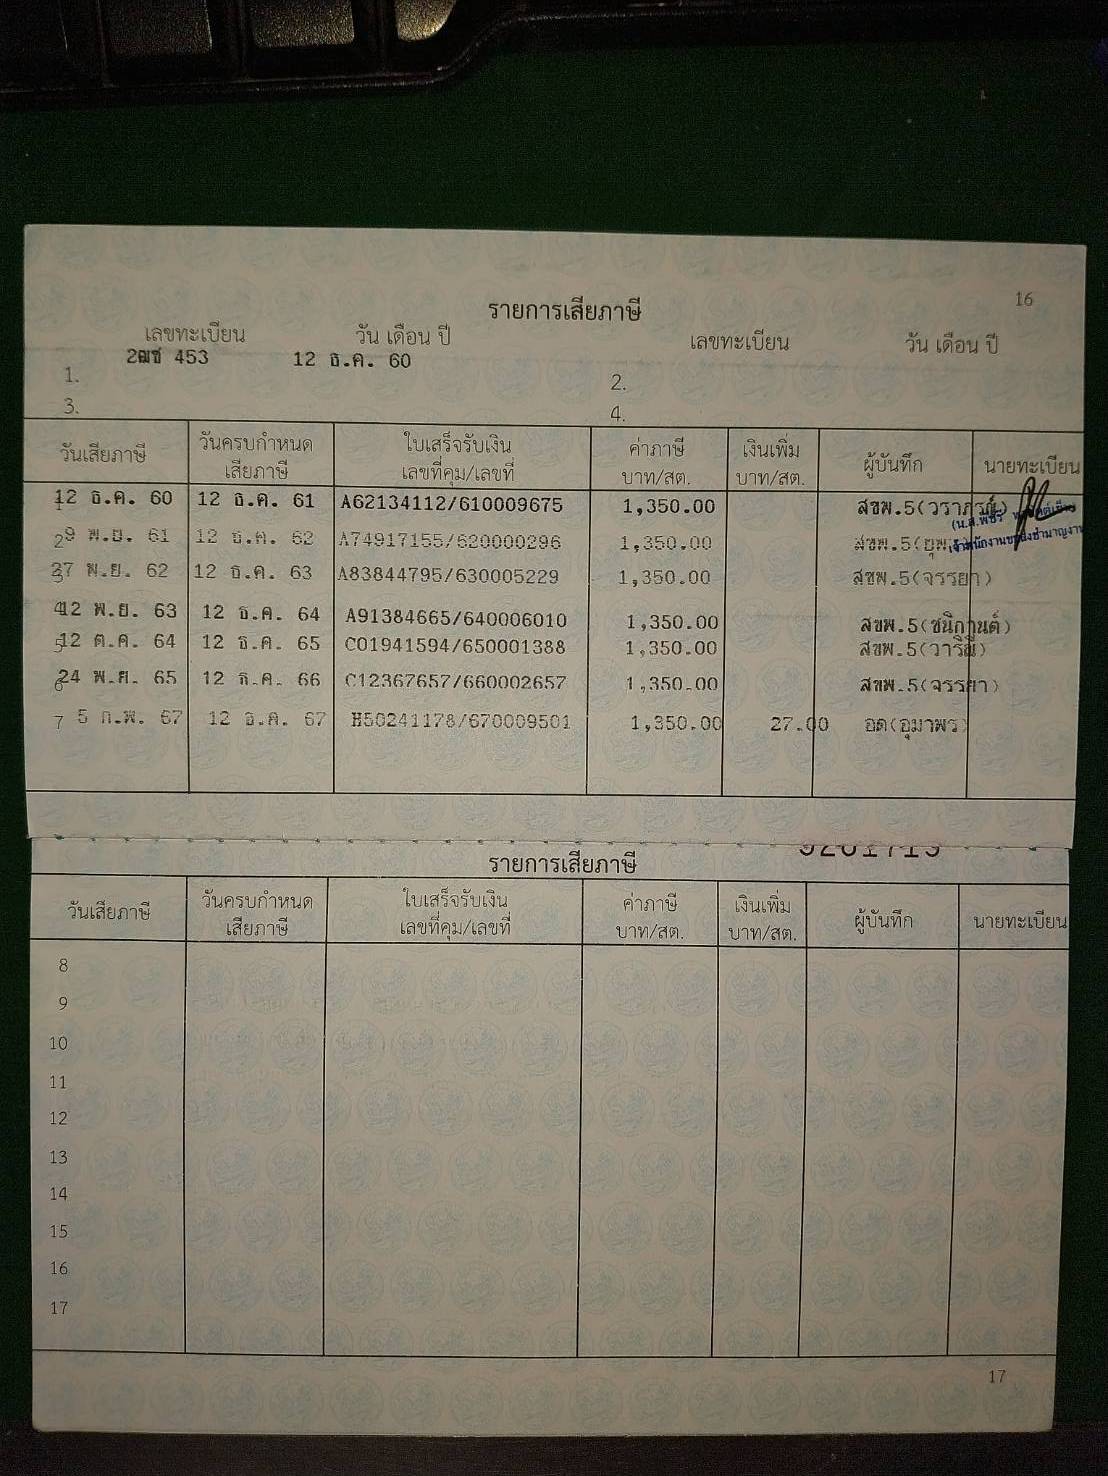 16
รายการเสียภาษี
เลขทะเบียน วัน เดือน ปี เลขทะเบียน วัน เดือน ปี
1. 2ฒช 453 12 ธ.ค. 60 2.
3. 4.
วันเสียภาษี วันครบกำหนดเสียภาษี ใบเสร็จรับเงิน เลขที่คุม/เลขที่ ค่าภาษี บาท/สต. เงินเพิ่ม บาท/สต. ผู้บันทึก นายทะเบียน
1 12 ธ.ค. 60 12 ธ.ค. 61 A62134112/610009675 1,350.00 สขพ.5(วราภรณ์)
2 9 พ.ย. 61 12 ธ.ค. 62 A74917155/620000296 1,350.00 สขพ.5(ยุพ
เจ้าพนักงานขนส่งชำนาญงาน
3 27 พ.ย. 62 12 ธ.ค. 63 A83844795/630005229 1,350.00 สขพ.5(จรรยา)
4 12 พ.ย. 63 12 ธ.ค. 64 A91384665/640006010 1,350.00 สขพ.5(ชนิกานต์)
5 12 ต.ค. 64 12 ธ.ค. 65 C01941594/650001388 1,350.00 สขพ.5(วารินี)
6 24 พ.ย. 65 12 ธ.ค. 66 C12367657/660002657 1,350.00 สขพ.5(จรรยา)
7 5 ก.พ. 67 12 ธ.ค. 67 H50241178/670009501 1,350.00 27.00 อด(อุมาพร)
รายการเสียภาษี
วันเสียภาษี วันครบกำหนดเสียภาษี ใบเสร็จรับเงิน เลขที่คุม/เลขที่ ค่าภาษี บาท/สต. เงินเพิ่ม บาท/สต. ผู้บันทึก นายทะเบียน
8
9
10
11
12
13
14
15
16
17
17